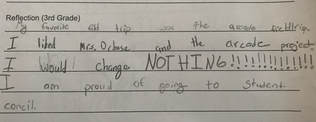 Reflection (3rd Grade)
My favorite trip was the arcade
I liked Mrs. and the arcade project.
I Would change NOTHING!!!!!!!!!!!!!!
I am proud of going to student
concil.